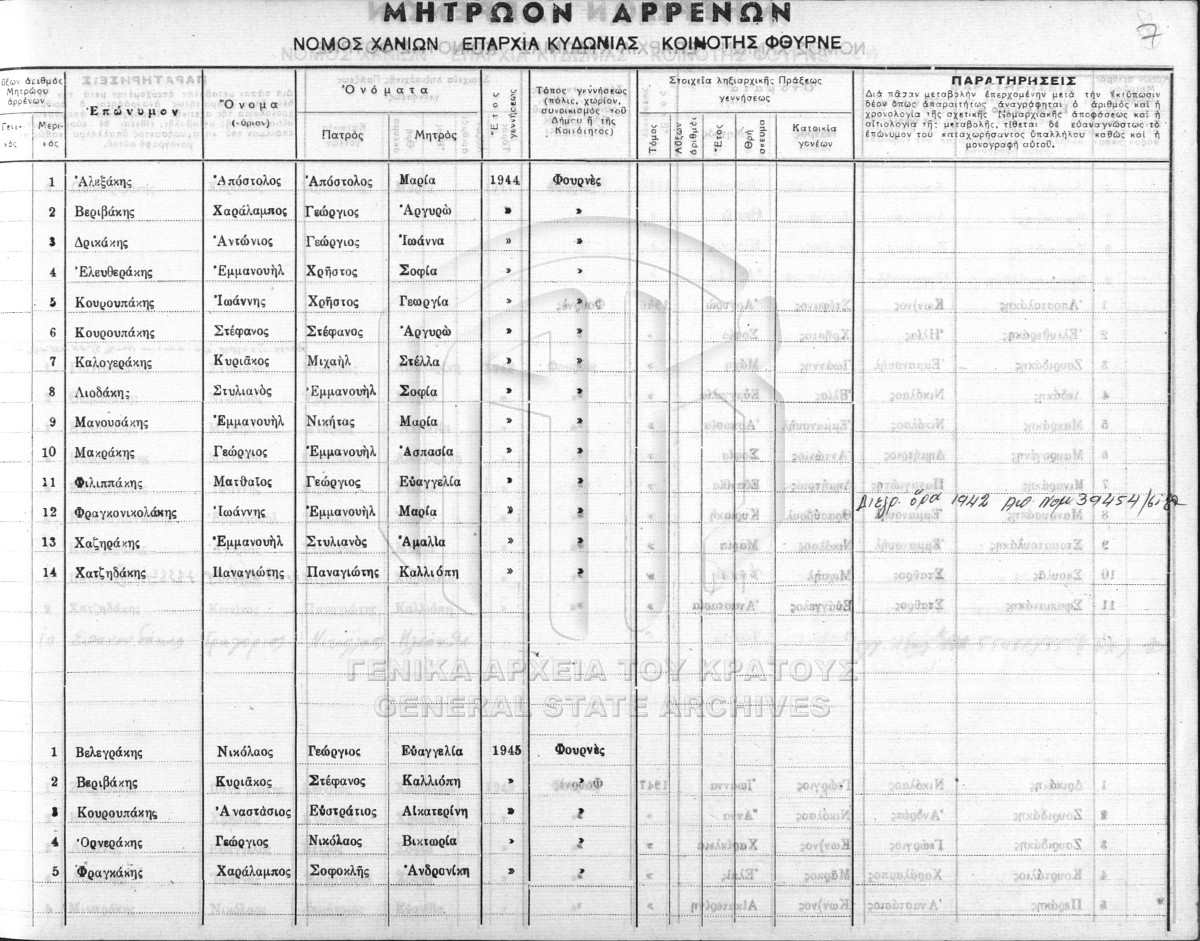 ΜΗΤΡΩΟΝ ΑΡΡΕΝΩΝ
7
ΝΟΜΟΣ ΧΑΝΙΩΝ ΕΠΑΡΧΙΑ ΚΥΔΩΝΙΑΣ ΚΟΙΝΟΤΗΣ ΦΘΥΡΝΕ
ὔξων ἀριθμὸς Μητρώου ἀρρένων
Γενι-κός
Μερι-κός
Ἐπώνυμον
Ὄνομα (κύριον)
Ὀνόματα
Πατρός
Μητρός
Ἔτος γεννήσεως
Τόπος γεννήσεως (πόλις, χωρίον, συνοικισμὸς τοῦ Δήμου ἢ τῆς Κοινότητος)
Στοιχεῖα ληξιαρχικῆς Πράξεως γεννήσεως
Τόμος
Αὔξων ἀριθμός
Ἔτος
Θρήσκευμα
Κατοικία γονέων
ΠΑΡΑΤΗΡΗΣΕΙΣ
Διὰ πᾶσαν μεταβολὴν ἐπερχομένην μετὰ τὴν ἐκτύπωσιν
δέον ὅπως ἀπαραιτήτως ἀναγράφηται ὁ ἀριθμὸς καὶ ἡ
χρονολογία τῆς σχετικῆς Νομαρχιακῆς ἀποφάσεως καὶ ἡ
αἰτιολογία τῆς μεταβολῆς, τίθεται δὲ εὐαναγνώστως τὸ
ἐπώνυμον τοῦ καταχωρήσαντος ὑπαλλήλου καθὼς καὶ ἡ
μονογραφὴ αὐτοῦ.
1 Ἀλεξάκης Ἀπόστολος Ἀπόστολος Μαρία 1944 Φουρνὲς
2 Βεριβάκης Χαράλαμπος Γεώργιος Ἀργυρὼ » »
3 Δρικάκης Ἀντώνιος Γεώργιος Ἰωάννα » »
4 Ἐλευθεράκης Ἐμμανουὴλ Χρῆστος Σοφία » »
5 Κουρουπάκης Ἰωάννης Χρῆστος Γεωργία » »
6 Κουρουπάκης Στέφανος Στέφανος Ἀργυρὼ » »
7 Καλογεράκης Κυριᾶκος Μιχαὴλ Στέλλα » »
8 Λιοδάκης Στυλιανὸς Ἐμμανουὴλ Σοφία » »
9 Μανουσάκης Ἐμμανουὴλ Νικήτας Μαρία » »
10 Μακράκης Γεώργιος Ἐμμανουὴλ Ἀσπασία » »
11 Φιλιππάκης Ματθαῖος Γεώργιος Εὐαγγελία » »
12 Φραγκονικολάκης Ἰωάννης Ἐμμανουὴλ Μαρία » »
1942 39454
13 Χαζηράκης Ἐμμανουὴλ Στυλιανὸς Ἀμαλία » »
14 Χατζηδάκης Παναγιώτης Παναγιώτης Καλλιόπη » »
ΓΕΝΙΚΑ ΑΡΧΕΙΑ ΤΟΥ ΚΡΑΤΟΥΣ
GENERAL STATE ARCHIVES
1 Βελεγράκης Νικόλαος Γεώργιος Εὐαγγελία 1945 Φουρνὲς
2 Βεριβάκης Κυριᾶκος Στέφανος Καλλιόπη » »
3 Κουρουπάκης Ἀναστάσιος Εὐστράτιος Αἰκατερίνη » »
4 Ὀρνεράκης Γεώργιος Νικόλαος Βικτωρία » »
5 Φραγκάκης Χαράλαμπος Σοφοκλῆς Ἀνδρονίκη » »